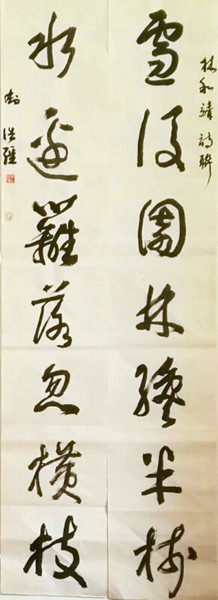 林和靖詩聯
雪後園林纔半樹
水邊籬落忽橫枝